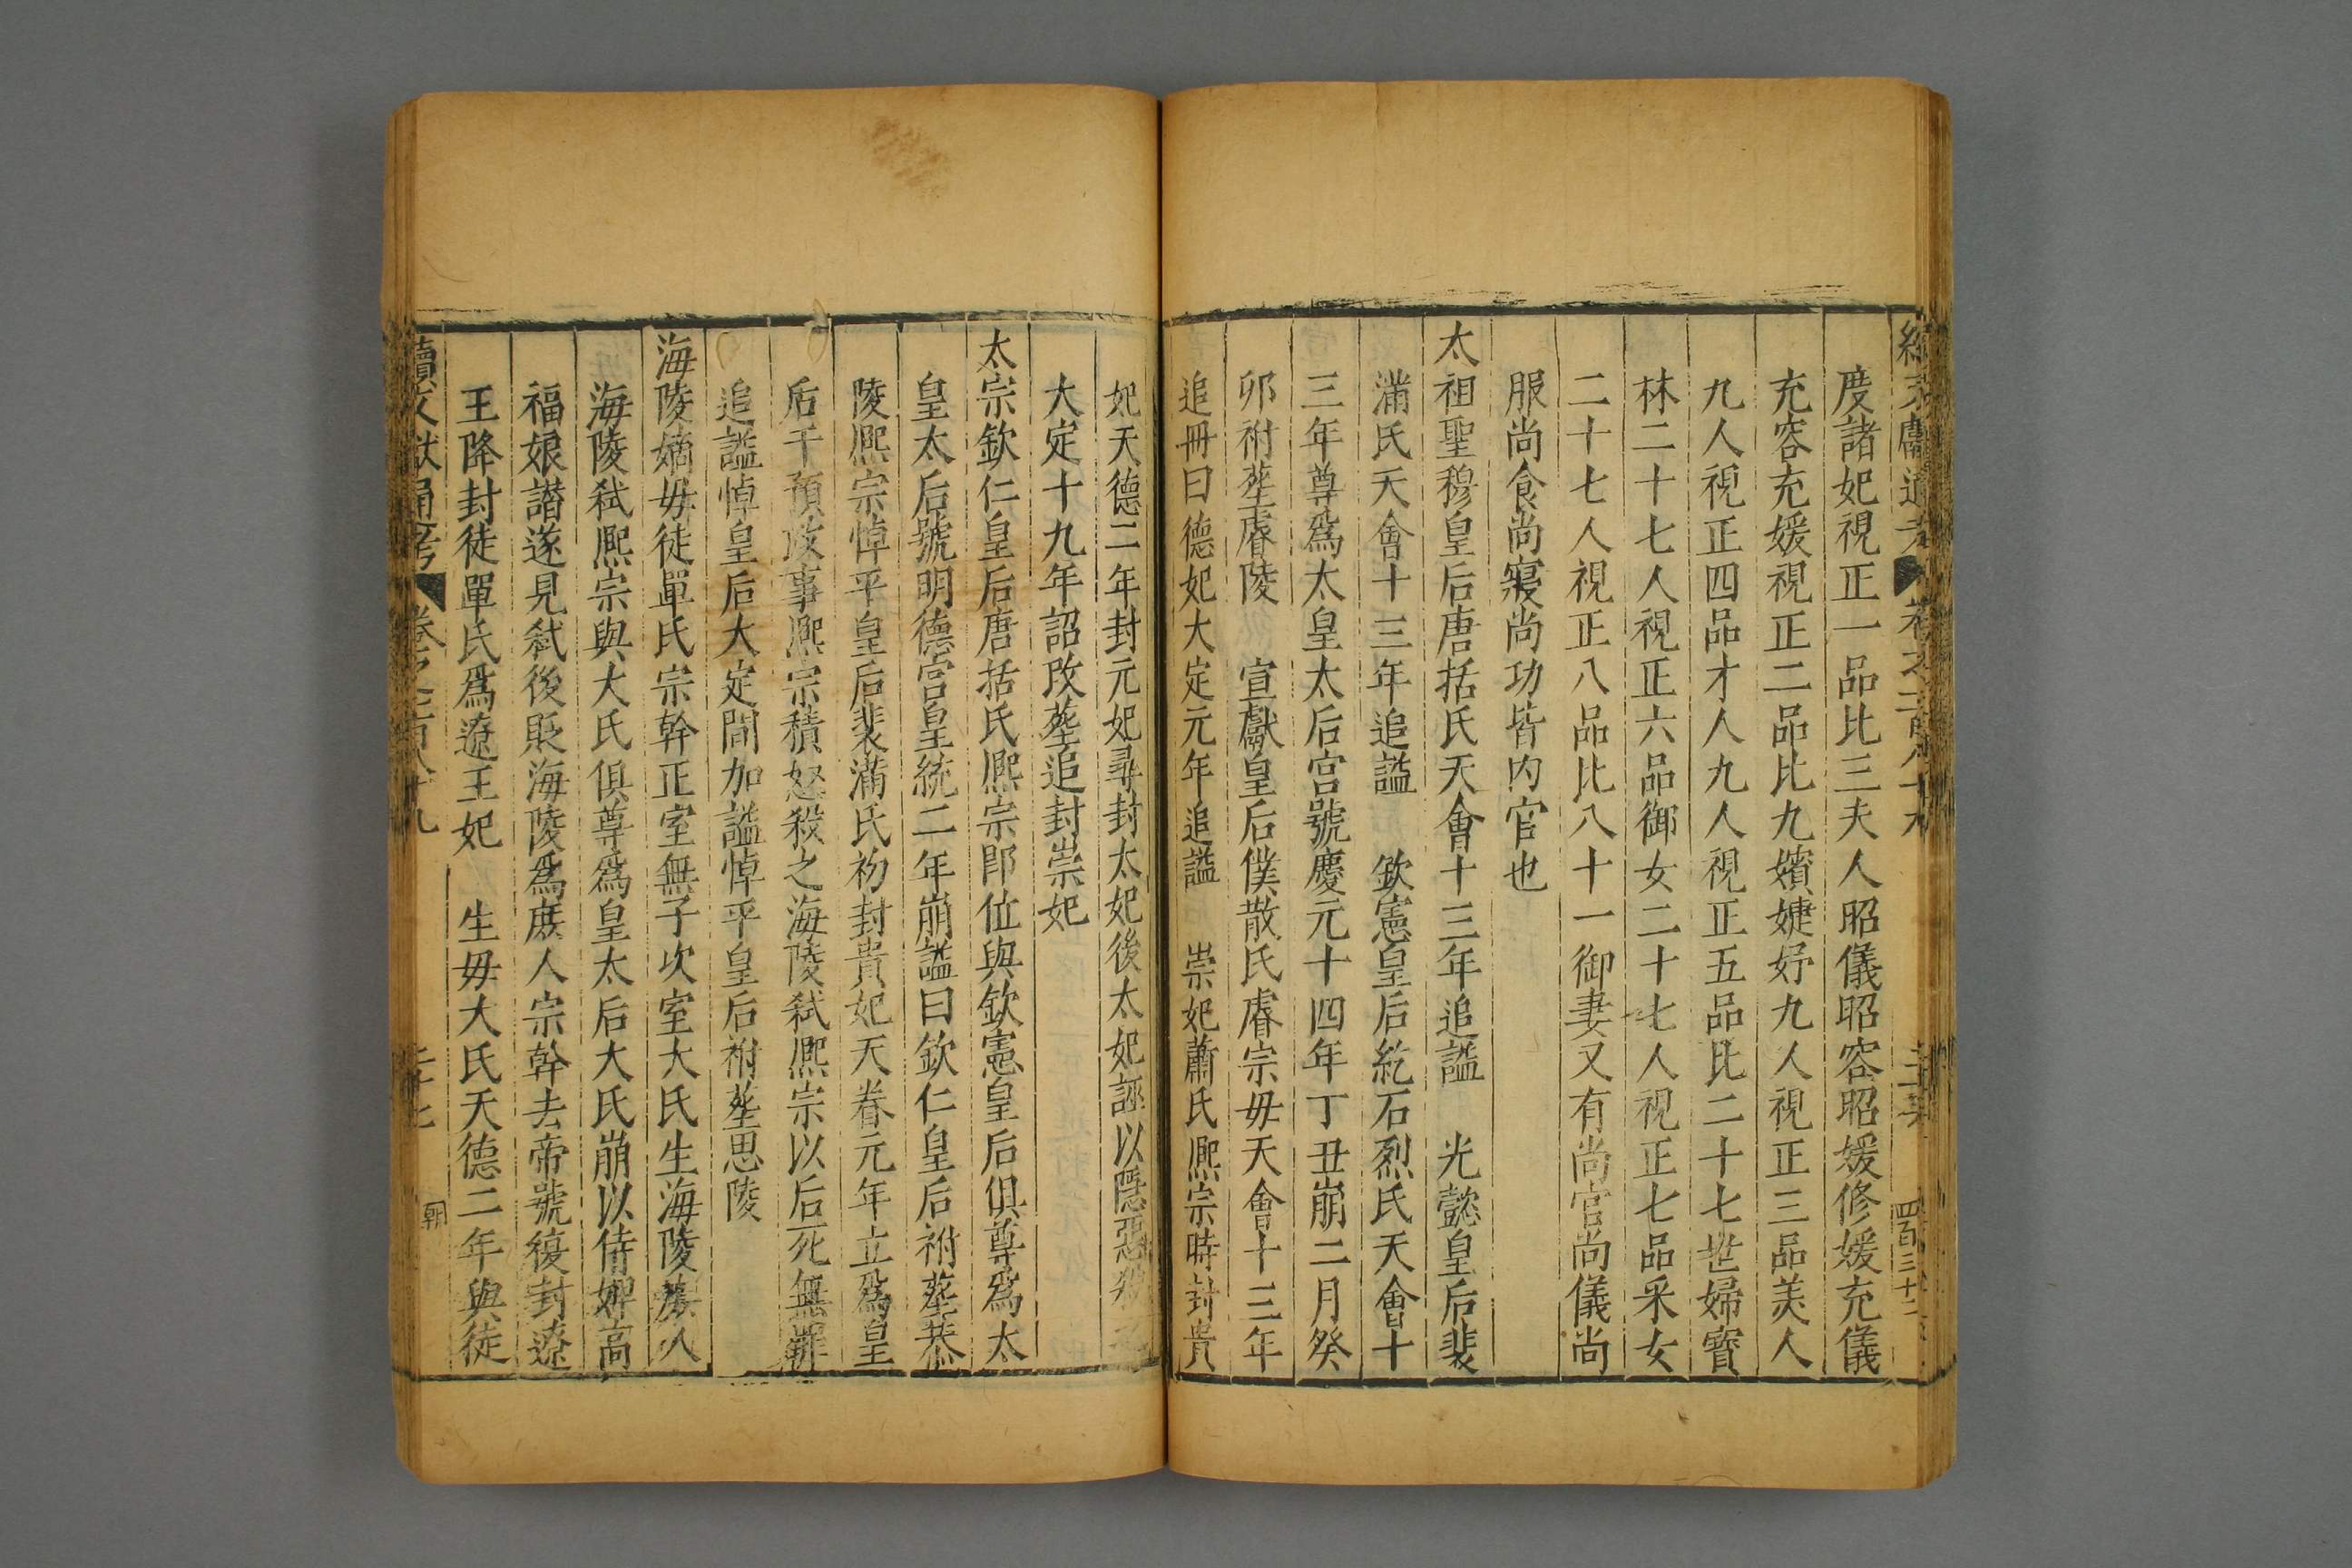 度諸妃視正一品比三夫人昭儀昭容昭媛修媛充儀
充容充媛視正二品比九嬪婕妤九人視正三品美人
九人視正四品才人九人視正五品比二十七世婦寳
林二十七人視正六品御女二十七人視正七品采女
二十七人視正八品比八十一御妻又有尚官尚儀尚
服尚食尚寢尚功皆内官也
太祖聖穆皇后唐括氏天會十三年追謚 光懿皇后裴
滿氏天會十三年追謚 欽憲皇后紇石烈氏天會十
三年尊爲太皇太后宫號慶元十四年丁丑崩二月癸
卯祔塟睿陵 宣獻皇后僕散氏睿宗毋天會十三年
追冊曰德妃大定元年追謚 崇妃蕭氏熈宗時封貴
妃天德二年封元妃尋封太妃後太妃誣以隱惡殺
大定十九年詔改塟追封崇妃
太宗欽仁皇后唐括氏熈宗即位與欽憲皇后俱尊爲太
皇太后號明德宫皇統二年崩謚曰欽仁皇后祔塟恭
陵熈宗悼平皇后裴滿氏初封貴妃天眷元年立爲皇
后干預政事熈宗積怒殺之海陵弑熈宗以后死無罪
追謚悼皇后大定間加謚悼平皇后祔塟思陵
海陵嫡毋徒單氏宗幹正室無子次室大氏生海陵
海陵弑熈宗與大氏俱尊爲皇太后大氏崩以侍婢高
福娘譛遂見弑後貶海陵爲庶人宗幹去帝號復封遼
王降封徒單氏爲遼王妃 生毋大氏天德二年與徒
續文獻通考 卷之二百八十九 三十七 朝